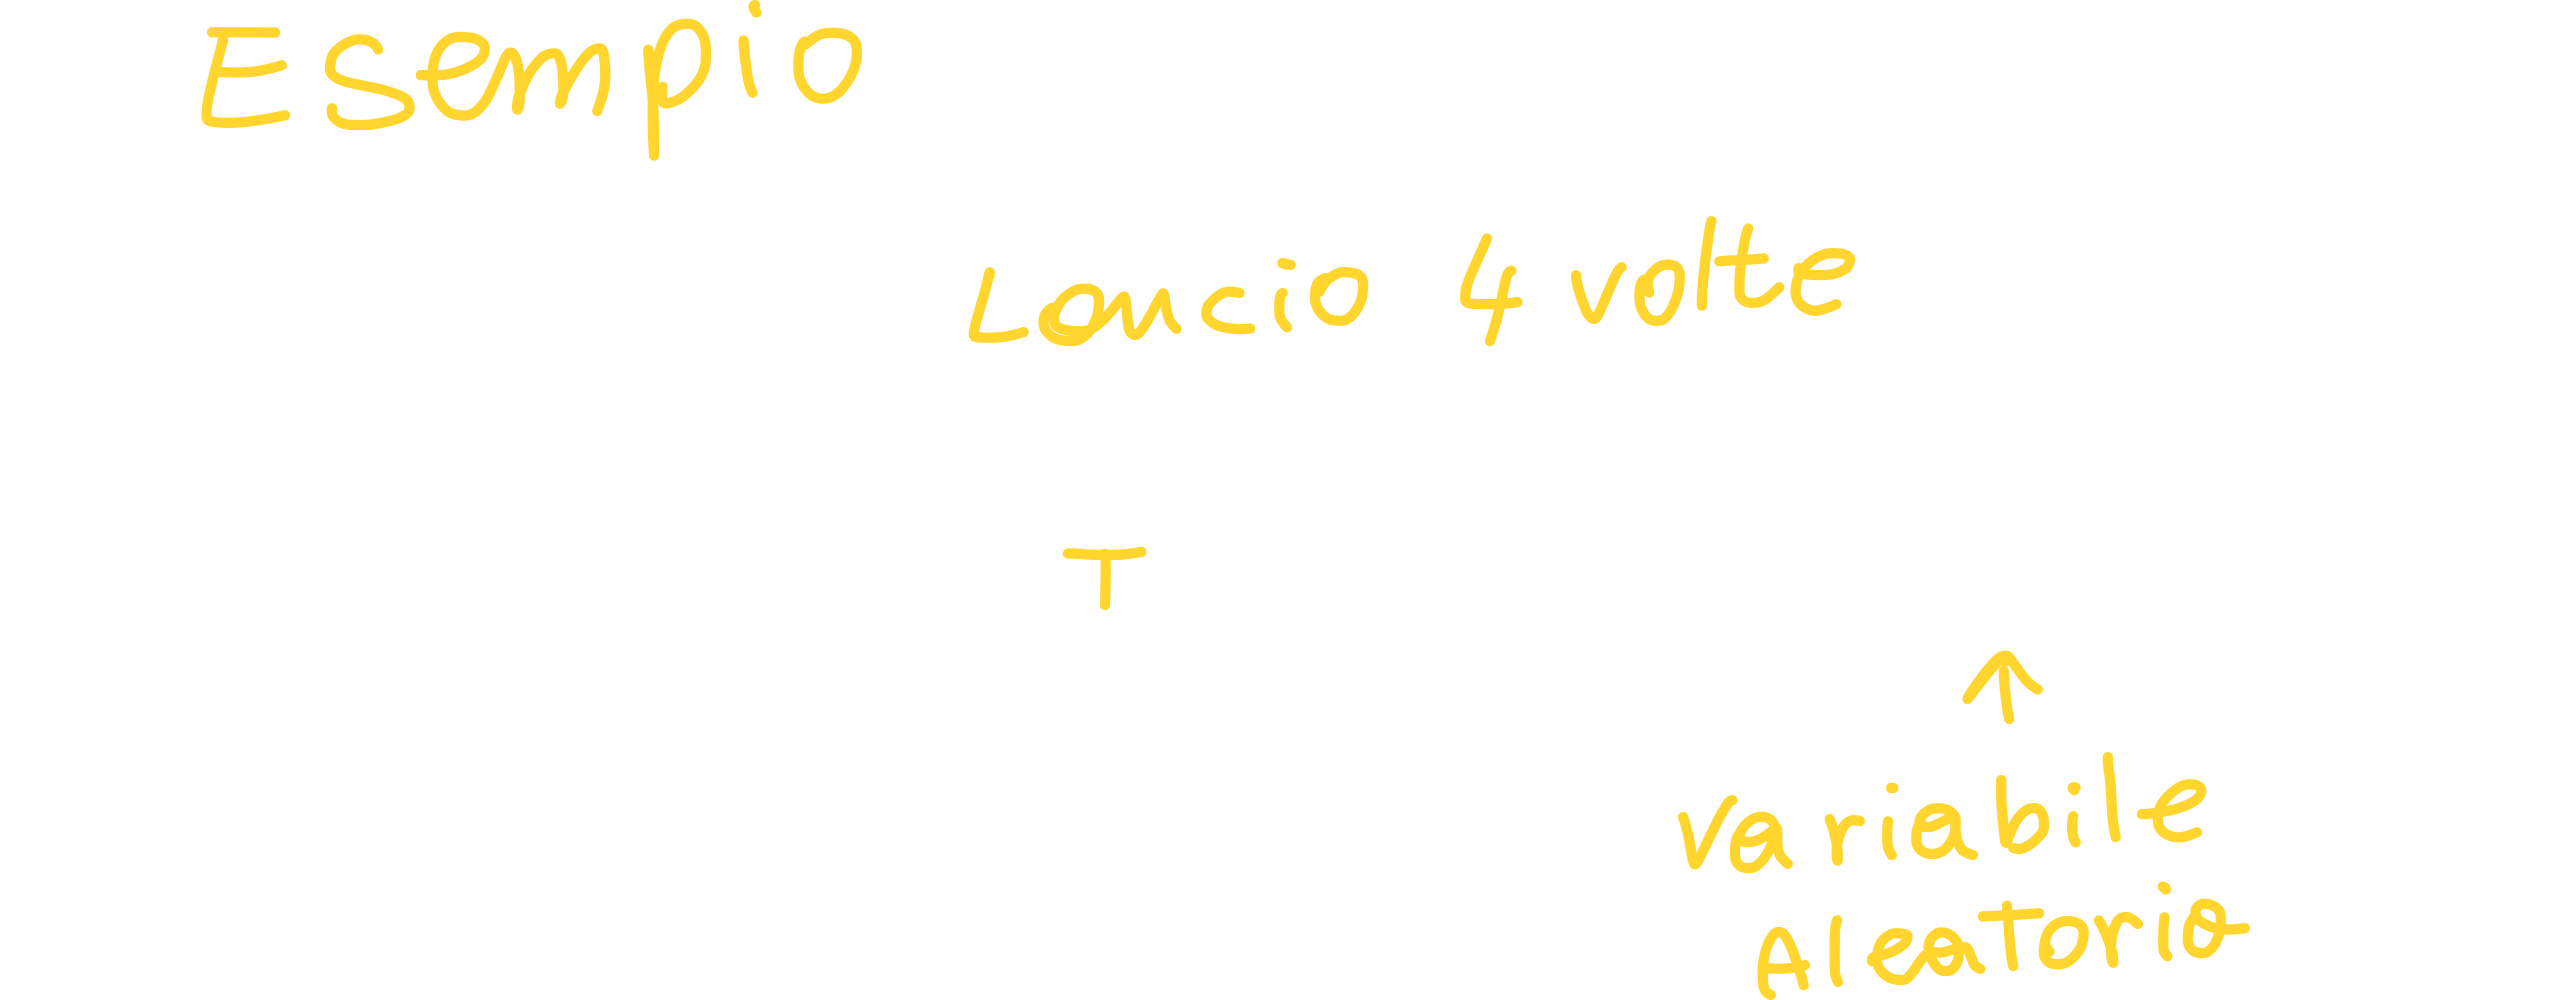 Esempio
Lancio 4 volte
T
↑
Variabile
Aleatoria